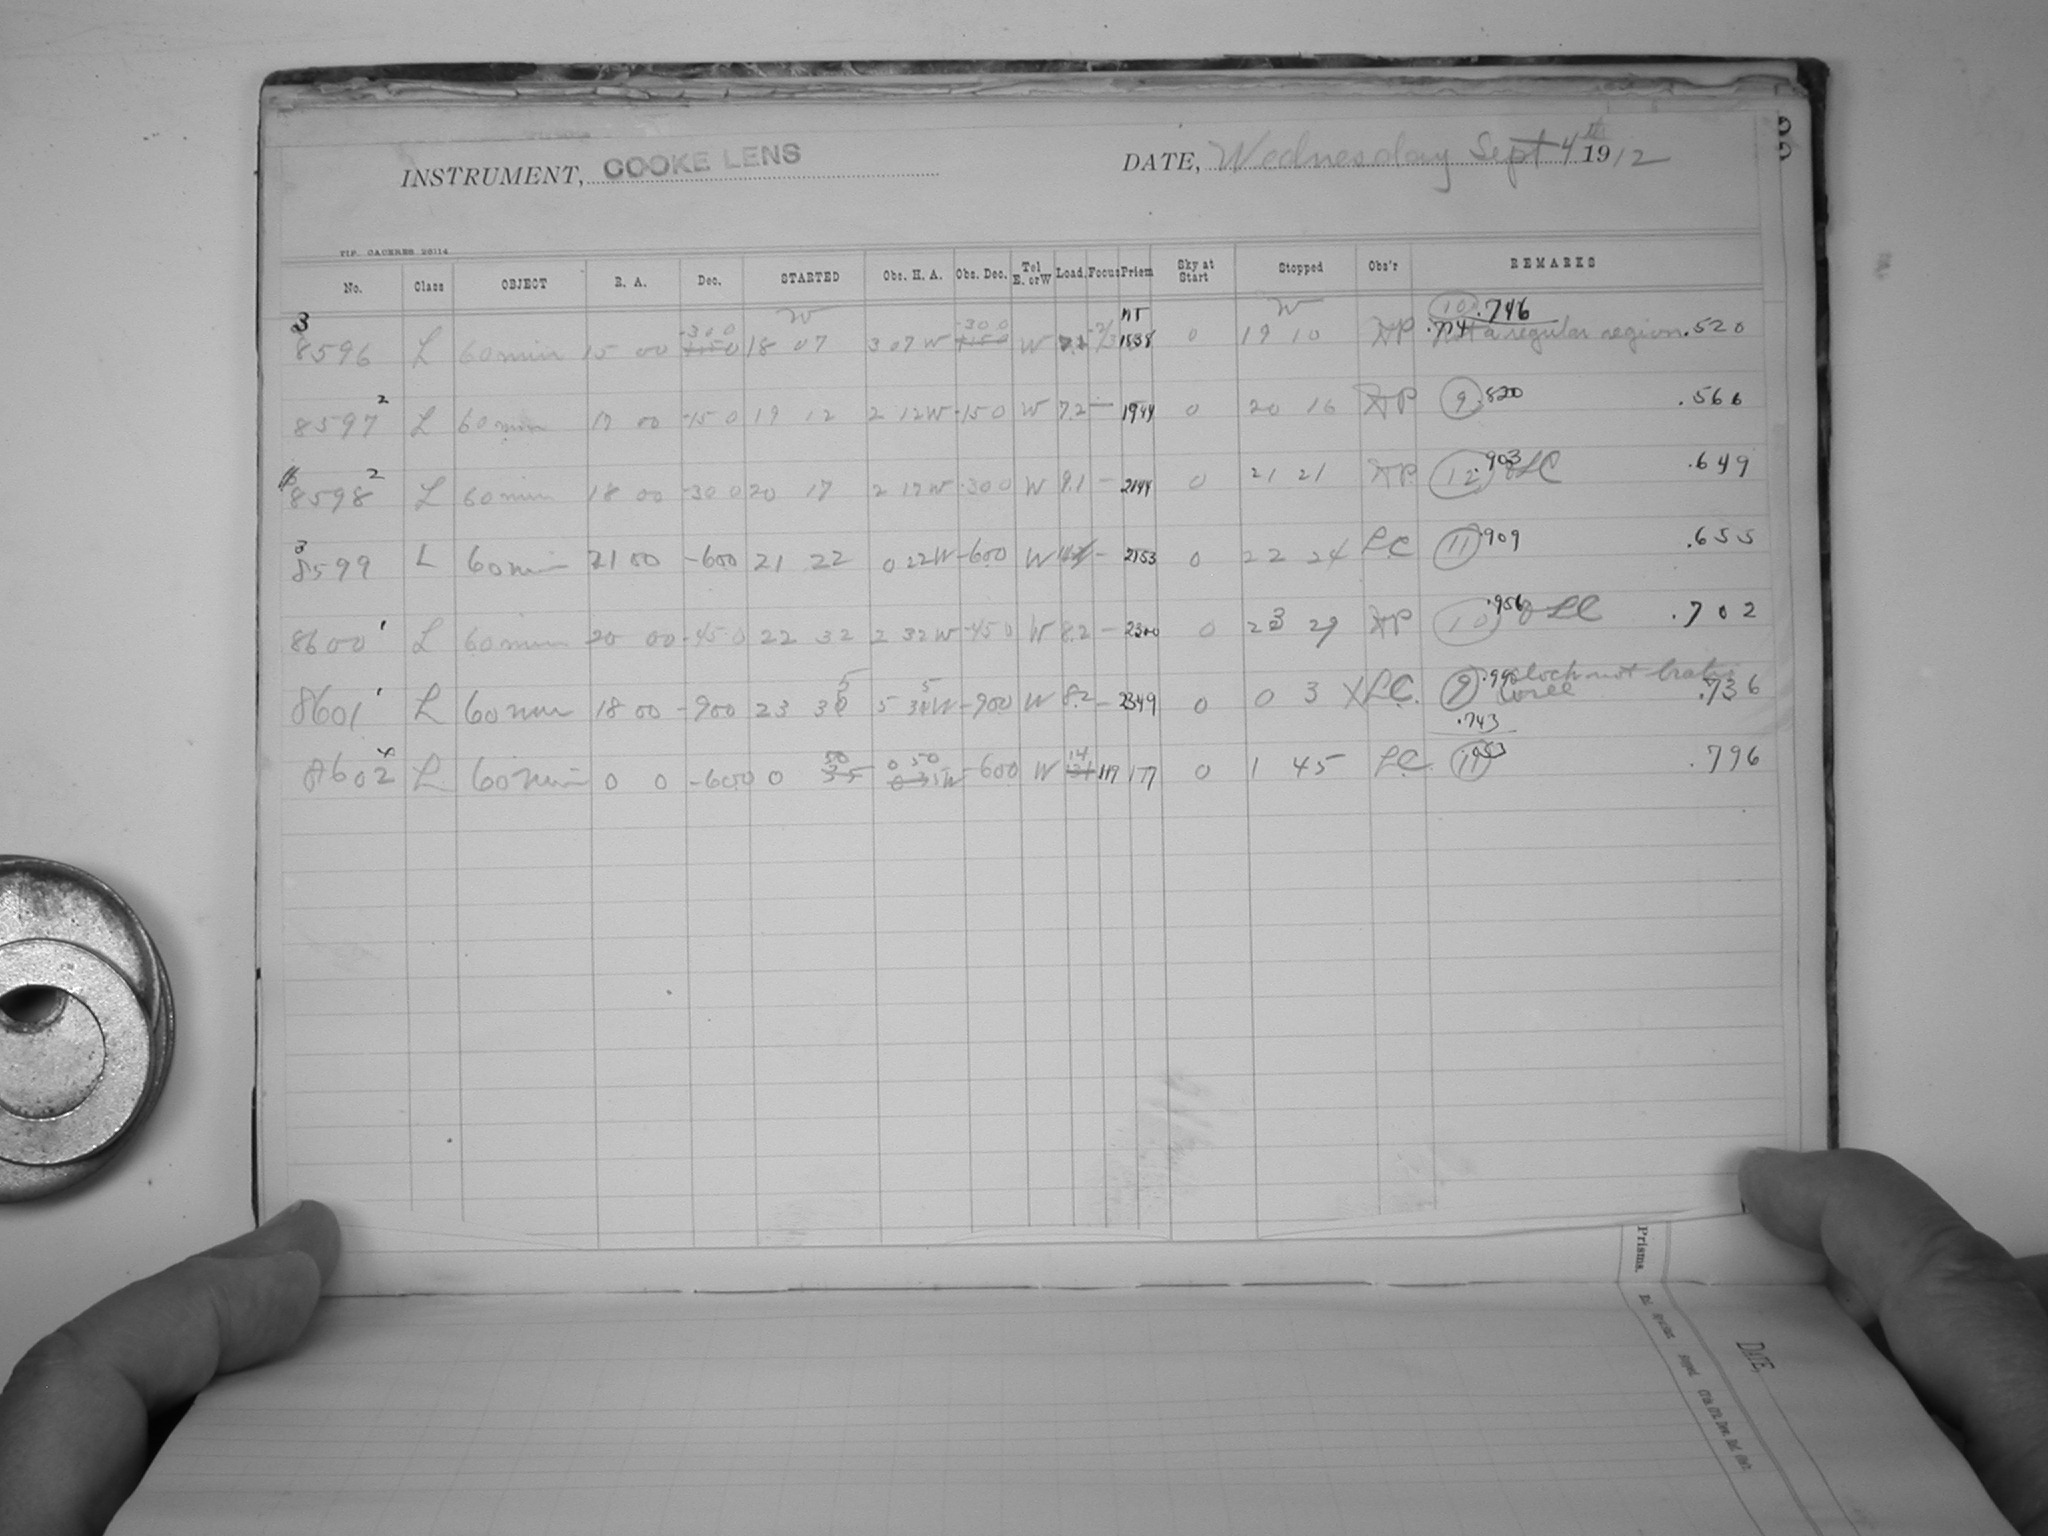 INSTRUMENT, COOKE LENS DATE, Wednesday Sept 4th 1912
TIP. CACERES 26114
No. Class OBJECT R. A. Dec. STARTED Obs. H. A. Obs. Dec. Tel E. or W Load. Focus Prism Sky at Start Stopped Obs'r REMARKS
W NT W 10 .746
3 -300 -300
8596 L 60 min 15 00 18 07 3 07 W W 1838 0 19 10 Not a regular region .520
8597 2 L 60 min 17 00 -15 0 19 12 2 12 W -15 0 W 7.2 — 1944 0 20 16 9 .820 .566
8598 2 L 60 min 18 00 -30 0 20 17 2 17 W -30 0 W 9.1 — 2144 0 21 21 12 .903 LC .649
3
8599 L 60 min 21 00 -600 21 22 0 22 W -600 W — 2153 0 22 24 LC 11 .909 .655
8600 1 L 60 min 20 00 -45 0 22 32 2 32 W -45 0 W 8.2 — 2300 0 23 29 10 .956 LC .702
5 5
8601 1 L 60 min 18 00 -900 23 30 5 30 W -900 W 8.2 — 2349 0 0 3 X LC. 9 .990 clock not well .736
.743
50 0 50 14
8602 4 L 60 min 0 0 -600 0 35 0 35 W -600 W 119 177 0 1 45 LC. .796
Prisms.
DATE,